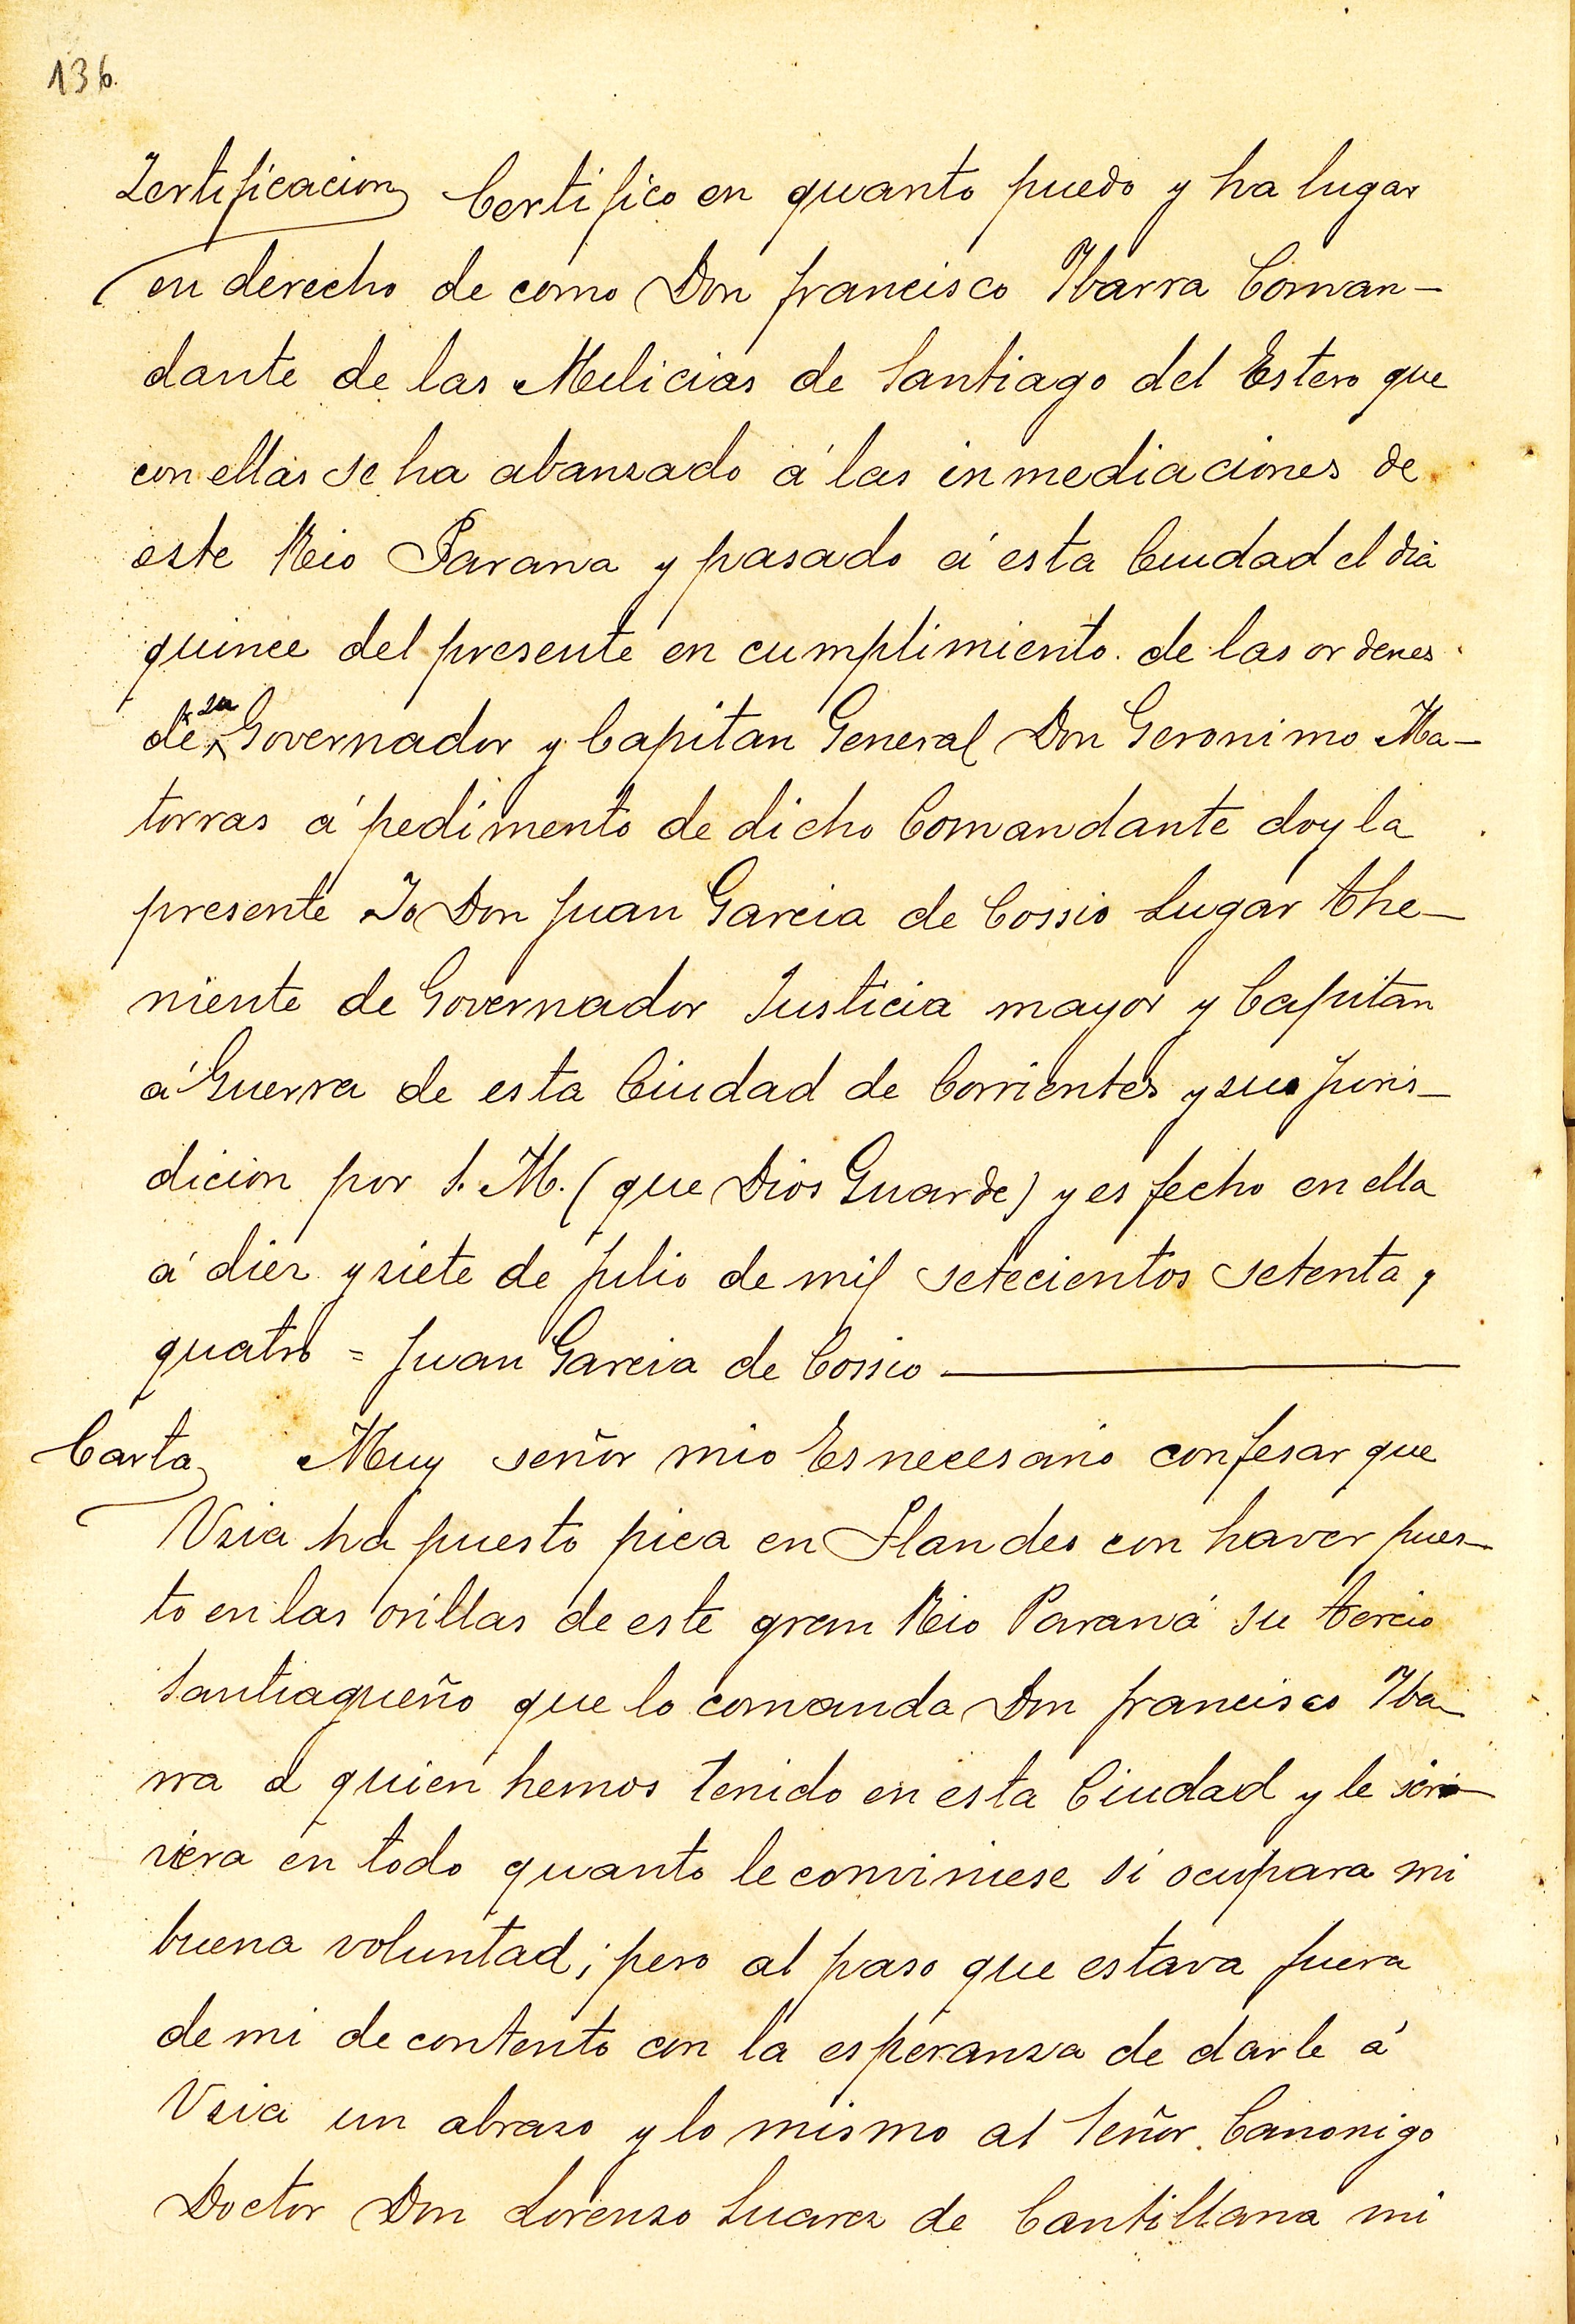 136.
Zertificacion Certifico en quanto puedo y ha lugar
en derecho de como Don francisco Ybarra Coman-
dante de las Milicias de Santiago del Estero que
con ellas se ha abansado á las inmediaciones de
este Rio Parana y pasado á esta Ciudad el dia
quince del presente en cumplimiento de las ordenes
de su Governador y Capitan General Don Geronimo Ma-
torras á pedimento de dicho Comandante doy la
presente Jo Don Juan Garcia de Cossio Lugar the-
niente de Governador Justicia mayor y Capitan
á Guerra de esta Ciudad de Corrientes y su juris-
dicion por S. M. (que Dios Guarde) y es fecho en ella
á diez y siete de julio de mil setecientos setenta y
quatro = Juan Garcia de Cossio
Carta Muy señor mio Es necesario confesar que
Usia ha puesto pica en Flandes con haver pues-
to en las orillas de este gran Rio Paraná su tercio
Santiagueño que lo comanda Don francisco Yba-
rra a quien hemos tenido en esta Ciudad y le
viera en todo quanto le conviniese si ocupara mi
buena voluntad; pero al paso que estava fuera
de mi de contento con la esperansa de darle á
Usia un abraso y lo mismo al Señor Canonigo
Doctor Don Lorenso Suarez de Cantillana mi